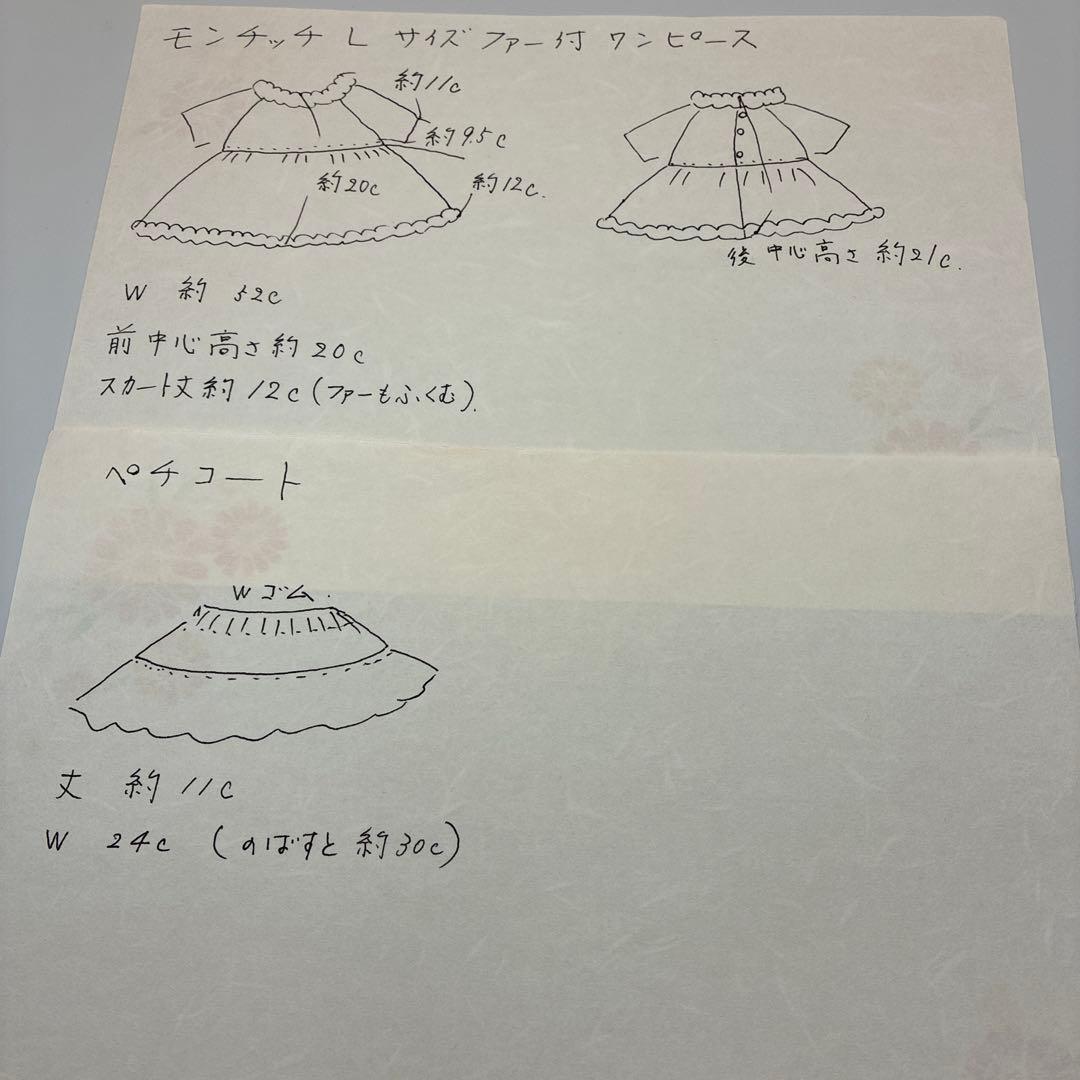 モンチッチ L サイズ ファー付 ワンピース
約11c
約9.5c
約20c
約12c.
後中心高さ 約21c.
W 約 52c
前中心高さ約20c
スカート丈約12c(ファーもふくむ).
ペチコート
W ゴム.
丈 約11c
W 24c (のばすと約30c)